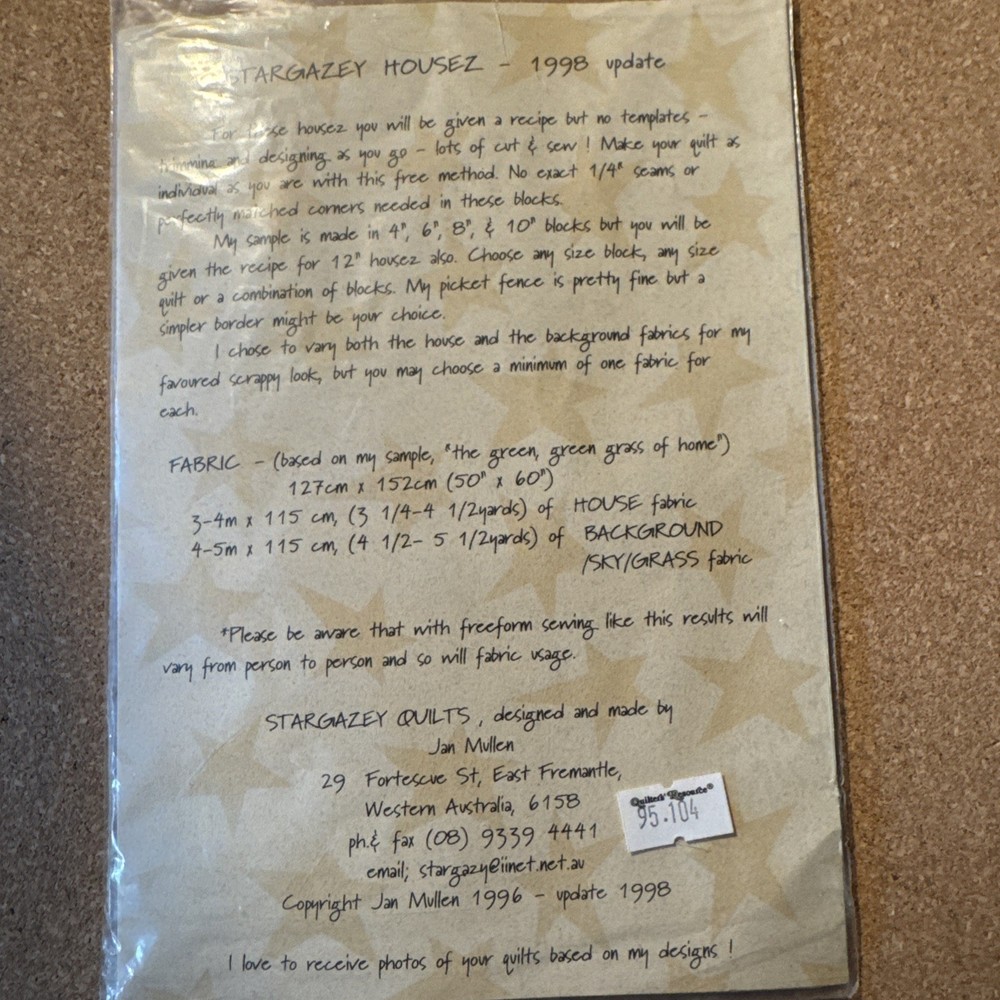 STARGAZEY HOUSEZ - 1998 update
For these housez you will be given a recipe but no templates -
trimming and designing as you go - lots of cut & sew ! Make your quilt as
individual as you are with this free method. No exact 1/4" seams or
perfectly matched corners needed in these blocks.
My sample is made in 4", 6", 8", & 10" blocks but you will be
given the recipe for 12" housez also. Choose any size block, any size
quilt or a combination of blocks. My picket fence is pretty fine but a
simpler border might be your choice.
I chose to vary both the house and the background fabrics for my
favoured scrappy look, but you may choose a minimum of one fabric for
each.
FABRIC - (based on my sample, "the green, green grass of home")
127cm x 152cm (50" x 60")
3-4m x 115 cm, (3 1/4-4 1/2yards) of HOUSE fabric
4-5m x 115 cm, (4 1/2- 5 1/2yards) of BACKGROUND
/SKY/GRASS fabric
*Please be aware that with freeform sewing like this results will
vary from person to person and so will fabric usage.
STARGAZEY QUILTS , designed and made by
Jan Mullen
29 Fortescue St, East Fremantle,
Western Australia, 6158
ph.& fax (08) 9339 4441
email; stargazy@iinet.net.au
Copyright Jan Mullen 1996 - update 1998
Quilters' Resource®
95.104
I love to receive photos of your quilts based on my designs !